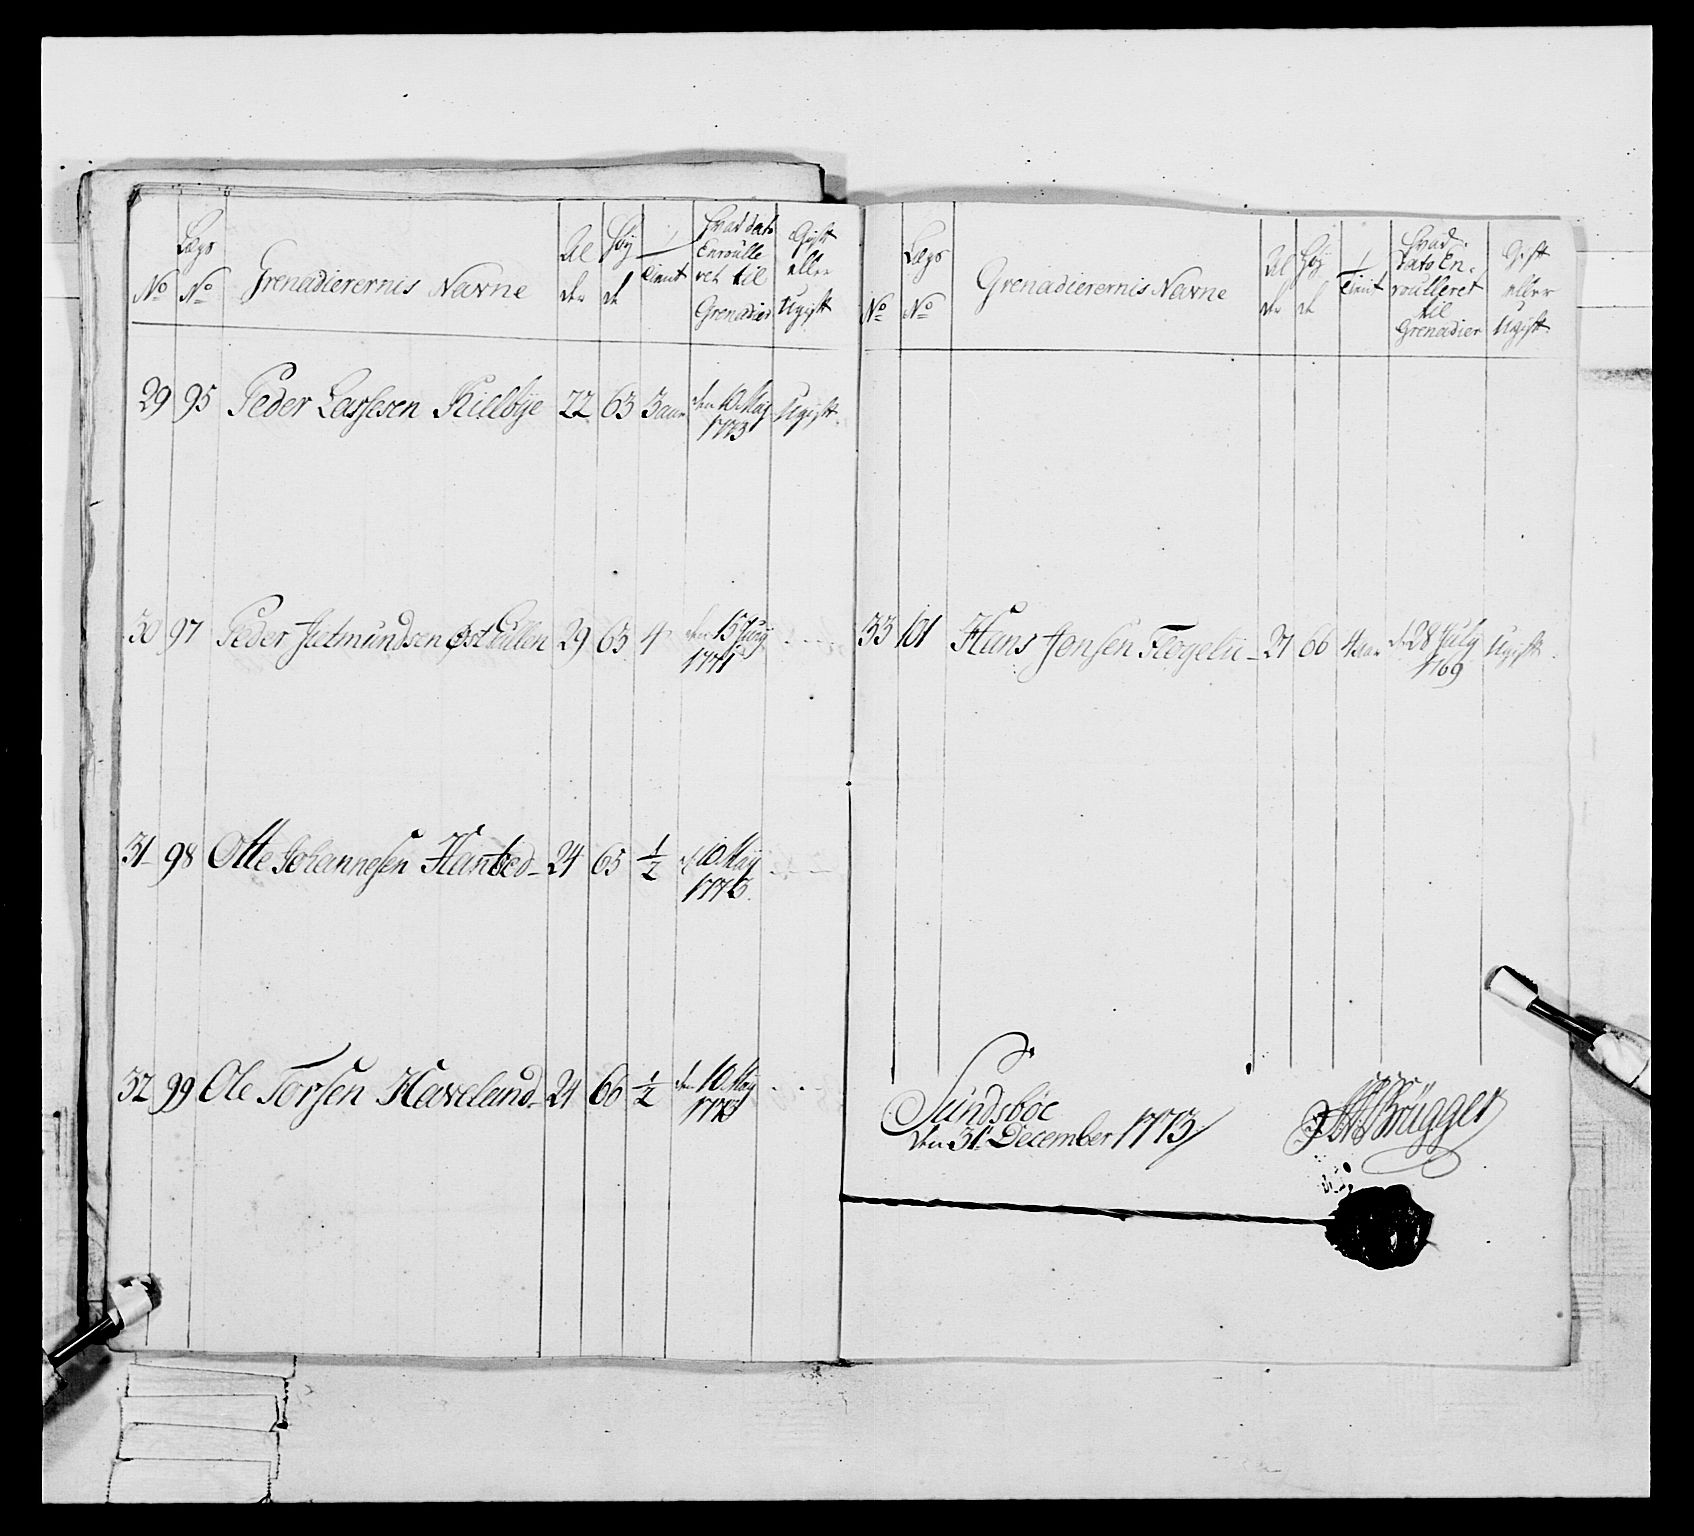 No
Lægs No
Grenadierernis Navne
Al der
Høy de
Tient
Hvad dato Enroulle ret til Grenadier
Gift eller Ugift
29 95 Peder Larssen Kielbye 22 63 3 aar den 10 May 1773 Ugift
30 97 Peder Jetmundsen Øst 29 63 4 den 15 1771
31 98 Otte Johannesen 24 65 1/2 d. 10 May 1773
32 99 Ole Torsen Haveland 24 66 1/2 den 10 May 1773
No
Lægs No
Grenadierernis Navne
Al der
Høy de
Tient
Hvad Dato En- roulleret til Grenadier
Gift eller Ugift
33 101 Hans Jensen 27 66 4 aar d. 28 July 1769 Ugift
Sundsbøe
den 31te December 1773
Brügger